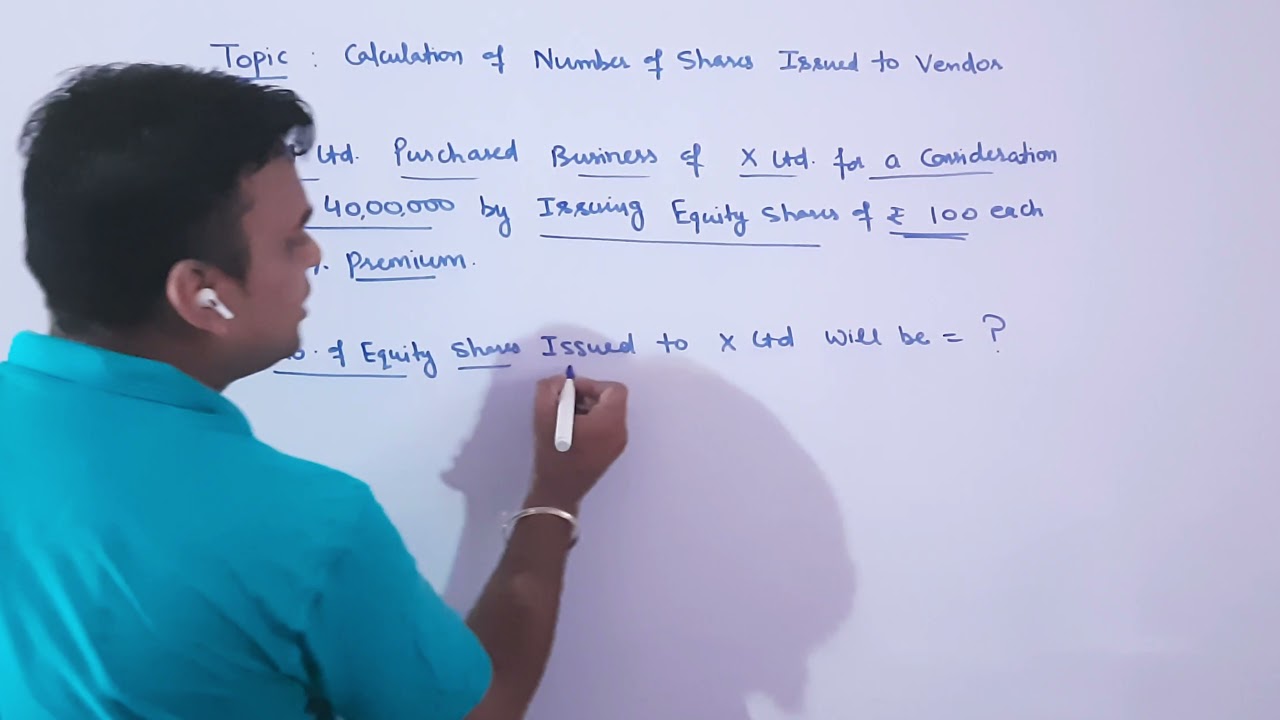 Topic : Calculation of Number of Shares Issued to Vendor
Ltd. Purchased Business of X Ltd. for a Consideration
40,00,000 by Issuing Equity Shares of ₹ 100 each
Premium.
of Equity Shares Issued to X Ltd will be = ?